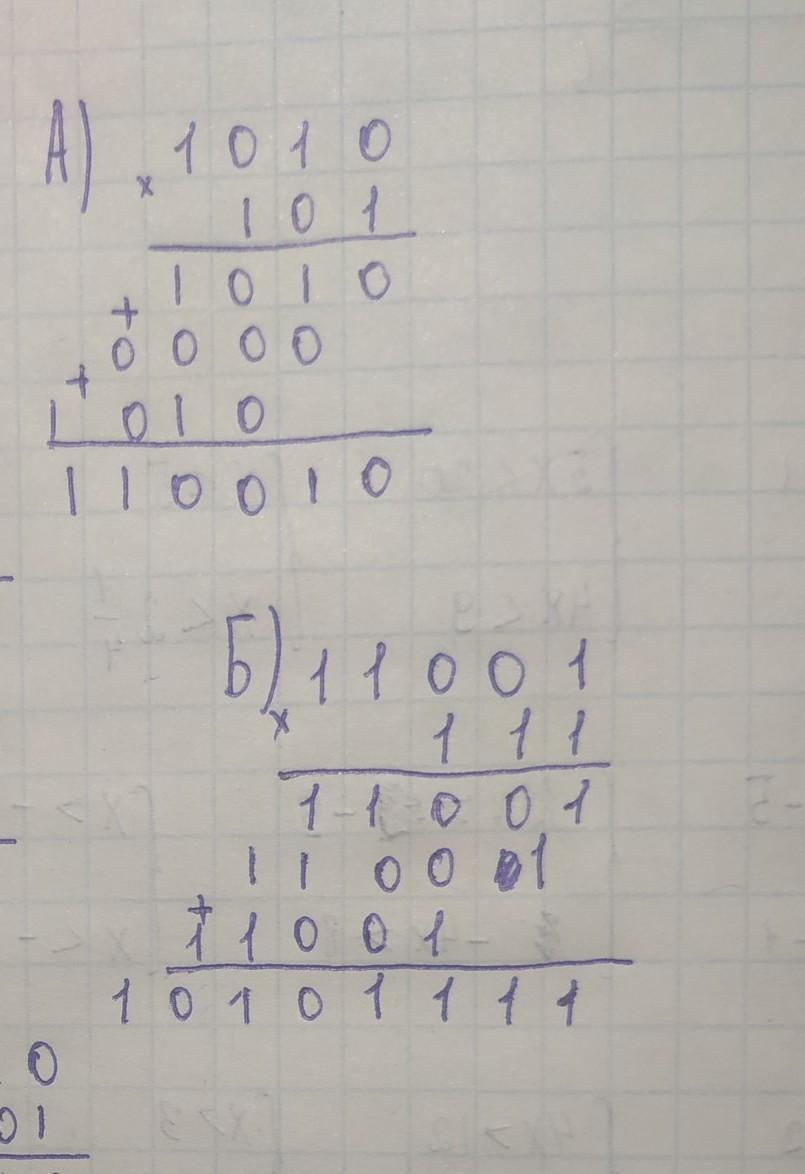 А) 1 0 1 0
× 1 0 1
1 0 1 0
+
0 0 0 0
+
1 0 1 0
1 1 0 0 1 0
Б) 1 1 0 0 1
× 1 1 1
1 1 0 0 1
1 1 0 0 1
+
1 1 0 0 1
1 0 1 0 1 1 1 1
0
0 1